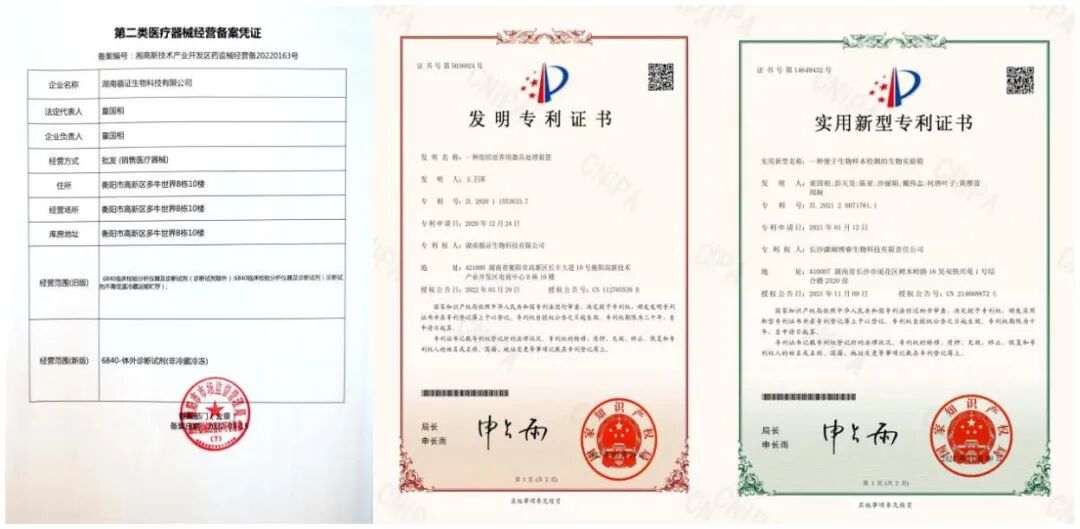 第二类医疗器械经营备案凭证
备案编号：湘高新技术产业开发区药监械经营备20220163号
企业名称
湖南循证生物科技有限公司
法定代表人
童国相
企业负责人
童国相
经营方式
批发 (销售医疗器械)
住所
衡阳市高新区多牛世界B栋10楼
经营场所
衡阳市高新区多牛世界B栋10楼
库房地址
衡阳市高新区多牛世界B栋10楼
经营范围(旧版)
6840临床检验分析仪器及诊断试剂（诊断试剂除外）;6840临床检验分析仪器及诊断试剂（诊断试
剂不需低温冷藏运输贮存）;
经营范围(新版)
6840-体外诊断试剂(非冷藏冷冻)
(7)
证书号第5036924号
发明专利证书
发明名称：一种组织培养用器具处理装置
发明人：王卫国
专利号：ZL 2020 1 1553633.7
专利申请日：2020年12月24日
专利权人：湖南循证生物科技有限公司
地址：421000 湖南省衡阳市高新区长丰大道19号衡阳高新技术
产业开发区电商中心B座10楼
授权公告日：2022年03月29日
授权公告号：CN 112705539 B
国家知识产权局依照中华人民共和国专利法进行审查，决定授予专利权，颁发发明专利
证书并在专利登记簿上予以登记。专利权自授权公告之日起生效。专利权期限为二十年，自
申请日起算。
专利证书记载专利权登记时的法律状况。专利权的转移、质押、无效、终止、恢复和专
利权人的姓名或名称、国籍、地址变更等事项记载在专利登记簿上。
局长
申长雨
申长雨
国家知识产权局
第1页(共2页)
其他事项参见续页
证书号第14649432号
实用新型专利证书
实用新型名称：一种便于生物样本检测的生物实验箱
专利号：ZL 2021 2 0071761.1
专利申请日：2021年01月12日
专利权人：长沙潇湘博睿生物科技有限责任公司
授权公告日：2021年11月09日
授权公告号：CN 214668972 U
国家知识产权局依照中华人民共和国专利法经过初步审查，决定授予专利权，颁发实用
新型专利证书并在专利登记簿上予以登记。专利权自授权公告之日起生效。专利权期限为十
年，自申请日起算。
专利证书记载专利权登记时的法律状况。专利权的转移、质押、无效、终止、恢复和专
利权人的姓名或名称、国籍、地址变更等事项记载在专利登记簿上。
局长
申长雨
申长雨
国家知识产权局
第1页(共2页)
其他事项参见续页